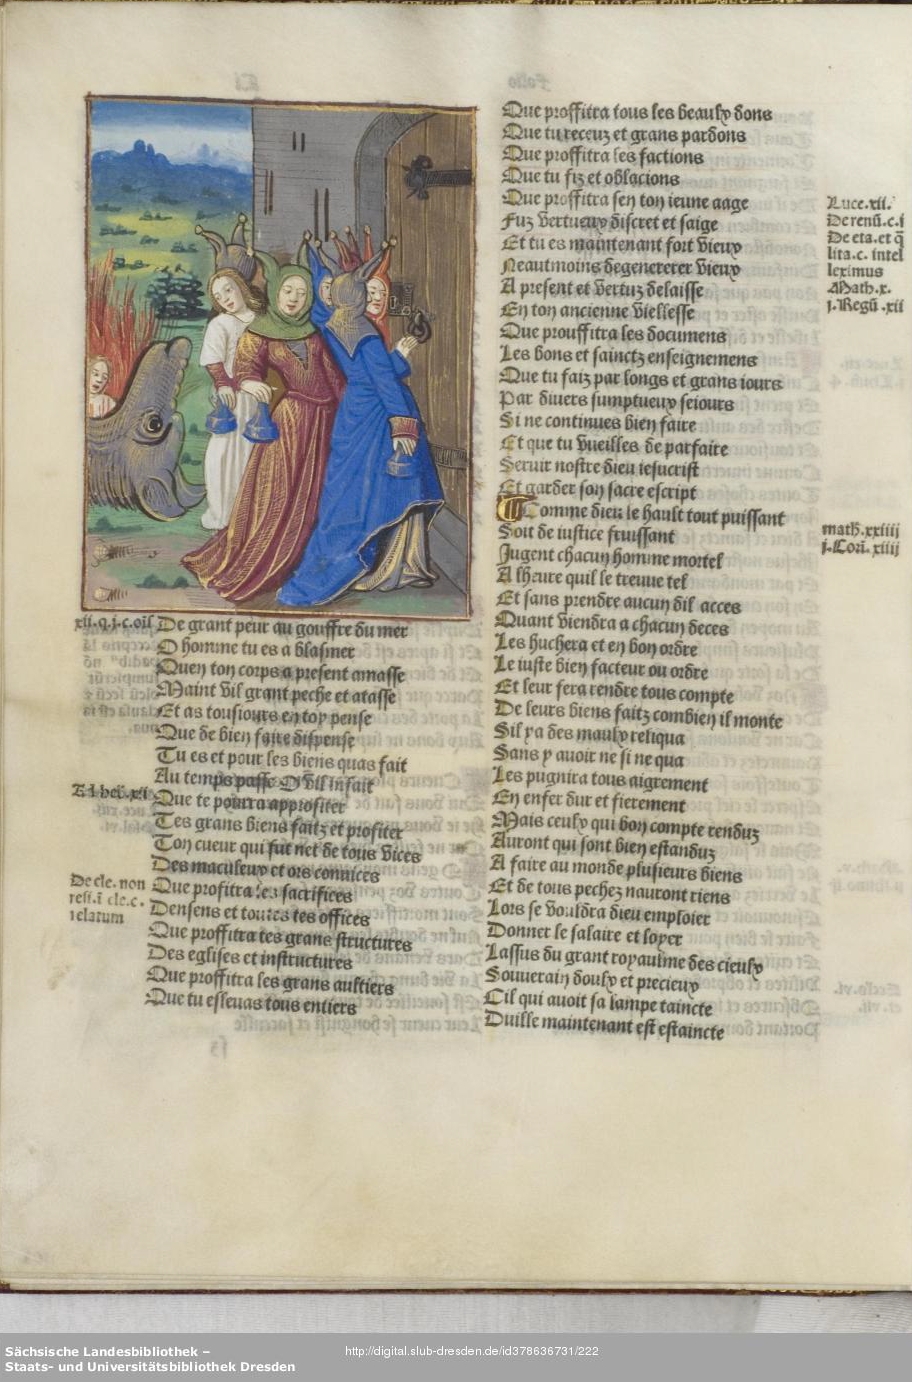 xii.q.j.c.oīs
De grant peur au gouffre du mer
O homme tu es a blasmer
Quen ton corps a present amasse
Maint vil grant peche et atasse
Et as tousiours en toy pense
Que de bien faire dispense
Tu es et pour les biens quas fait
Au temps passe O vil infait
Que te pourra approfiter
Tes grans biens faitz et profiter
Ton cueur qui fut net de tous vices
Des maculeux et ors connices
De cle. non
resi. ī cle. c.
relatum
Que profitra les sacrifices
Densens et toutes tes offices
Que proffitra tes grans structures
Des eglises et instructures
Que proffitra les grans aultiers
Que tu esleuas tous entiers
Que proffitra tous les beaulx dons
Que tu receuz et grans pardons
Que proffitra les factions
Que tu fiz et oblacions
Que proffitra sen ton ieune aage
Fuz vertueux discret et saige
Et tu es maintenant fort vieux
Neautmoins degenererer vieux
A present et vertuz delaisse
En ton ancienne viellesse
Que prouffitra les documens
Les bons et sainctz enseignemens
Que tu faiz par longs et grans iours
Par diuers sumptueux seiours
Si ne continues bien faire
Et que tu vueilles de parfaire
Seruir nostre dieu iesucrist
Et garder son sacre escript
Comme dieu le hault tout puissant
Soit de iustice fruissant
Jugent chacun homme mortel
A lheure quil le treuue tel
Et sans prendre aucun dil acces
Quant viendra a chacun deces
Les huchera et en bon ordre
Le iuste bien facteur ou ordre
Et leur fera rendre tous compte
De leurs biens faitz combien il monte
Sil ya des maulx reliqua
Sans y auoir ne si ne qua
Les pugnira tous aigrement
En enfer dur et fierement
Mais ceulx qui bon compte renduz
Auront qui sont bien estanduz
A faire au monde plusieurs biens
Et de tous pechez nauront riens
Lors se vouldra dieu emploier
Donner le salaire et loyer
Lassus du grant royaulme des cieulx
Souuerain doulx et precieux
Cil qui auoit sa lampe taincte
Duille maintenant est estaincte
Luce.xii.
De renū.c.i
De eta.et q̄
lita.c. intel
leximus
Math.x.
j.Regū.xii
math.xxiiij
j.Cori.xiiij
Sächsische Landesbibliothek –
Staats- und Universitätsbibliothek Dresden
http://digital.slub-dresden.de/id378636731/222